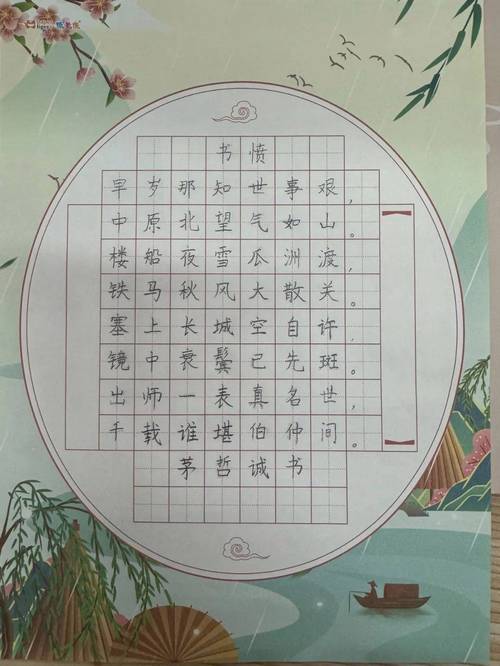 书愤
早岁那知世事艰，
中原北望气如山。
楼船夜雪瓜洲渡，
铁马秋风大散关。
塞上长城空自许，
镜中衰鬓已先斑。
出师一表真名世，
千载谁堪伯仲间。
茅哲诚书